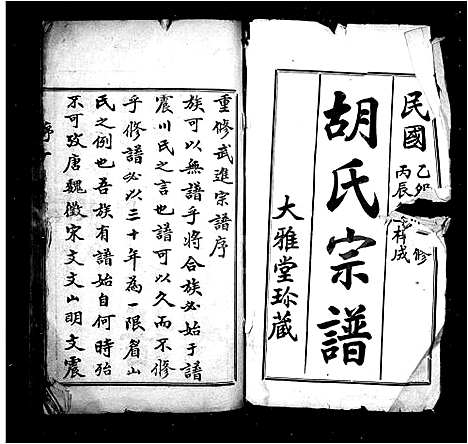 民國
乙卯
丙辰
修
梓成
胡氏宗譜
大雅堂珎藏
重修武進宗譜序
族可以無譜乎將合族必始于譜
震川氏之言也譜可以久而不修
乎修譜必以三十年為一限眉山
氏之例也吾族有譜始自何時殆
不可攷唐魏徵宋文文山明文震
序